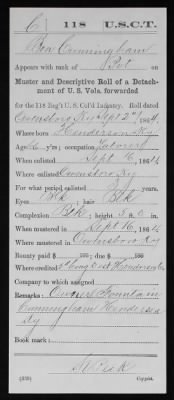 C | 118 | U.S.C.T.
Ben Cunningham
Appears with rank of Pvt on
Muster and Descriptive Roll of a Detach-
ment of U. S. Vols. forwarded
for the 118 Reg't U. S. Col'd Infantry. Roll dated
Owensboro Ky Sept 27, 1864.
Where born Henderson Ky
Age y'rs; occupation Laborer
When enlisted Sept 16, 1864
Where enlisted Owensboro Ky
For what period enlisted 3 years.
Eyes Blk; hair Blk
Complexion Blk; height ft. in.
When mustered in Sept 16, 1864
Where mustered in Owensboro Ky
Bounty paid $ 100; due $ 100
Where credited 2d Cong Dist Henderson Co
Company to which assigned
Remarks: Owner Fountain
Cunningham Henderson
Ky
Book mark:
(339) Copyist.